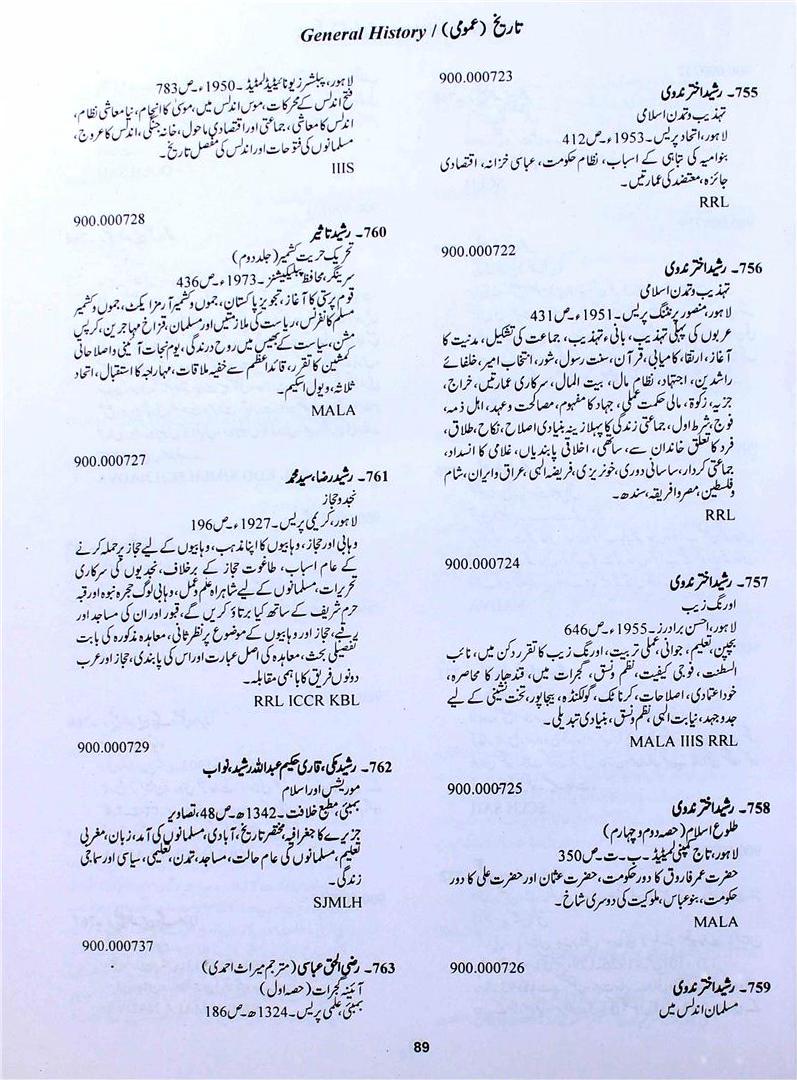 تاریخ (عمومی) / General History
900.000723
755۔ رشید اختر ندوی
تہذیب و تمدن اسلامی
لاہور، اتحاد پریس۔ 1953ء۔ ص412
بنوامیہ کی تباہی کے اسباب، نظام حکومت، عباسی خزانہ، اقتصادی
جائزہ، معتضد کی عمارتیں۔
RRL
900.000722
756۔ رشید اختر ندوی
تہذیب و تمدن اسلامی
لاہور، منصور پرنٹنگ پریس۔ 1951ء۔ ص431
عربوں کی پہلی تہذیب، بانیء تہذیب، جماعت کی تشکیل، مدنیت کا
آغاز، ارتقا، کامیابی، قرآن، سنت رسول، شور، انتخاب امیر، خلفائے
راشدین، اجتہاد، نظام مال، بیت المال، سرکاری عمارتیں، خراج،
جزیہ، زکوٰۃ، مالی حکمت عملی، جہاد کا مفہوم، مصالحت وعہد، اہل ذمہ،
فوج، شرط اول، جماعتی زندگی کا پہلا زینہ بنیادی اصلاح، نکاح، طلاق،
فرد کا تعلق خاندان سے، ساتھی، اخلاقی پابندیاں، غلامی کا انسداد،
جماعتی کردار، ساسانی دوری، خونریزی، فریضہ الٰہی، عراق وایران، شام
وفلسطین، مصر وافریقہ، سندھ۔
RRL
900.000724
757۔ رشید اختر ندوی
اورنگ زیب
لاہور، احسن برادرز۔ 1955ء۔ ص646
بچپن، تعلیم، جوانی، عملی تربیت، اورنگ زیب کا تقرر دکن میں، نائب
السطنت، فوجی کیفیت، نظم ونسق، گجرات میں، قندھار کا محاصرہ،
خود اعتمادی، اصلاحات، کرناٹک، گولکنڈہ، بیجاپور، تخت نشینی کے لیے
جدوجہد، نیابت الٰہی، نظم ونسق، بنیادی تبدیلی۔
MALA IIIS RRL
900.000725
758۔ رشید اختر ندوی
طلوع اسلام (حصہ دوم و چہارم)
لاہور، تاج کمپنی لمیٹیڈ۔ ب۔ت۔ ص350
حضرت عمر فاروق کا دور حکومت، حضرت عثمان اور حضرت علی کا دور
حکومت، بنوعباس، ملوکیت کی دوسری شاخ۔
MALA
900.000726
759۔ رشید اختر ندوی
مسلمان اندلس میں
لاہور، پبلشرز یونائیٹیڈ لمٹیڈ۔ 1950ء۔ ص783
فتح اندلس کے محرکات، موسیٰ اندلس میں، موسیٰ کا انجام، نیا معاشی نظام،
اندلس کا معاشی، جماعتی اور اقتصادی ماحول، خانہ جنگی، اندلس کا عروج،
مسلمانوں کی فتوحات اور اندلس کی مفصل تاریخ۔
IIIS
900.000728
760۔ رشید تاثیر
تحریک حریت کشمیر (جلد دوم)
سرینگر، محافظ پبلیکیشنز۔ 1973ء۔ ص436
قوم پرستی کا آغاز، تجویز پاکستان، جموں وکشمیر آرمز ایکٹ، جموں وکشمیر
مسلم کانفرنس، ریاست کی ملازمتیں اور مسلمان، فراخ مہاجرین، کرپس
مشن، سیاست کے بھیس میں روح درندگی، یوم نجات آئینی واصلاحاتی
کمشین کا تقرر، قائد اعظم سے خفیہ ملاقات، مہاراجہ کا استقبال، اتحاد
ثلاثہ، ویول اسکیم۔
MALA
900.000727
761۔ رشید رضا، سید محمد
نجد وحجاز
لاہور، کریمی پریس۔ 1927ء۔ ص196
وہابی اور حجاز، وہابیوں کا اپنا مذہب، وہابیوں کے لیے حجاز پر حملہ کرنے
کے عام اسباب، طاغوت حجاز کے برخلاف، نجدیوں کی سرکاری
تحریرات، مسلمانوں کے لیے شاہراہ علم وعمل، وہابی لوگ حجرہ نبوہ اور قبہ
حرم شریف کے ساتھ کیا برتاؤ کریں گے، قبور اور ان کی مساجد اور
پرقبے، حجاز اور وہابیوں کے موضوع پر نظر ثانی، معاہدہ مذکورہ کی بابت
تفصیلی بحث، معاہدہ کی اصل عبارت اور اس کی پابندی، حجاز اور عرب
دونوں فریق کا باہمی مقابلہ۔
RRL ICCR KBL
900.000729
762۔ رشید مکی، قاری حکیم عبداللہ رشید، نواب
موریشس اور اسلام
بمبئی، مطبع خلافت۔ 1342ھ۔ ص48، تصاویر
جزیرے کا جغرافیہ، مختصر تاریخ، آبادی، مسلمانوں کی آمد، زبان، مغربی
تعلیم، مسلمانوں کی عام حالت، مساجد، تمدن، تعلیمی، سیاسی اور سماجی
زندگی۔
SJMLH
900.000737
763۔ رضی الحق عباسی (مترجم میراث احمدی)
آئینہ گجرات (حصہ اول)
بمبئی، علمی پریس۔ 1324ھ۔ ص186
89